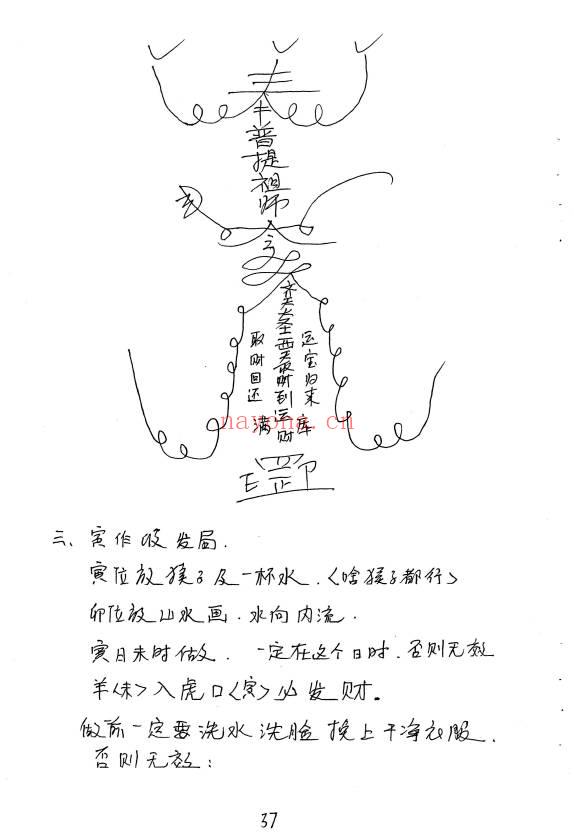 奉
普提祖师
令
齐天大圣西天取财到运财
取财回还
运宝归来
满库
nayona.cn
三、寅作收发局.
寅位放猴子及一杯水.<啥猴子都行>
卯位放山水画.水向内流.
寅日未时做.一定在这个日时.否则无效
羊<未>入虎口<寅>必发财。
做前一定要洗水洗脸换上干净衣服.
否则无效:
37